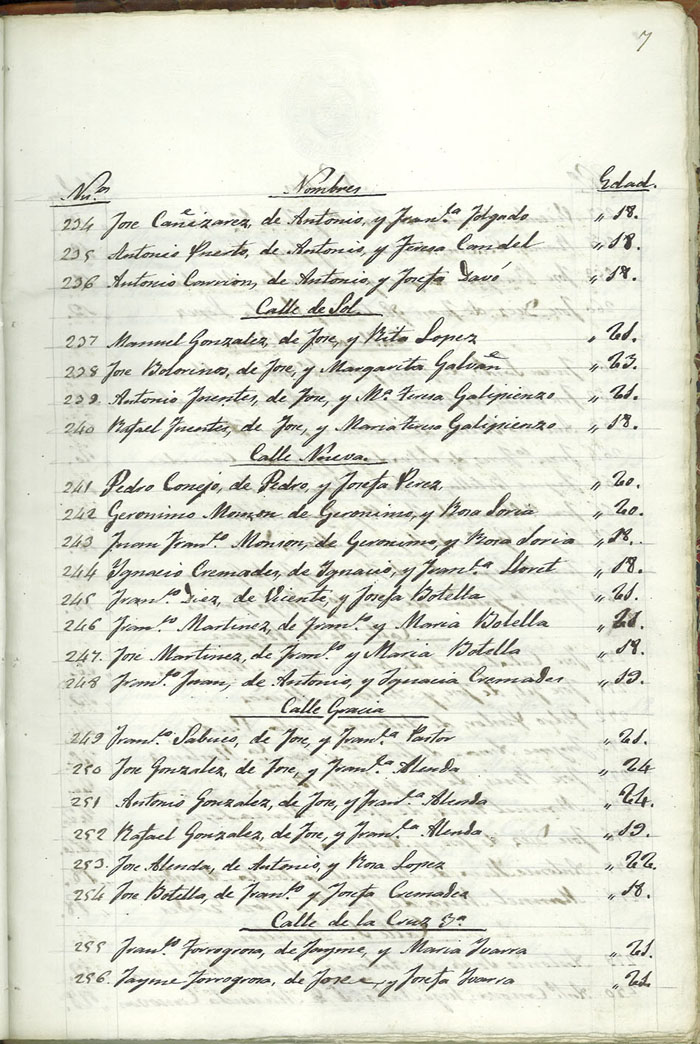 7
Nu.os Nombres Edad.
234 Jose Cañizarez, de Antonio, y Fran.ca Folgado „ 18.
235 Antonio Puerto, de Antonio, y Teresa Candel „ 18.
236 Antonio Carrion, de Antonio, y Josefa Davó „ 18.
Calle de Sol.
237 Manuel Gonzalez, de Jose, y Rita Lopez „ 21.
238 Jose Bolorinos, de Jose, y Margarita Galvañ „ 23.
239 Antonio Fuentes, de Jose, y M.a Teresa Galipienzo „ 21.
240 Rafael Fuentes, de Jose, y Maria Teresa Galipienzo „ 18.
Calle Nueva.
241 Pedro Conejo, de Pedro, y Josefa Perez „ 20.
242 Geronimo Monzon de Geronimo, y Rosa Soria „ 20.
243 Juan Fran.co Monson, de Geronimo, y Rosa Soria „ 18.
244 Ignacio Cremades, de Ignacio, y Fran.ca Lloret „ 18.
245 Fran.co Diez, de Vicente, y Josefa Botella „ 21.
246 Fran.co Martinez, de Fran.co y Maria Botella „ 21.
247. Jose Martinez, de Fran.co y Maria Botella „ 18.
248 Fran.co Juan, de Antonio, y Ignacia Cremades „ 19.
Calle Gracia
249 Fran.co Sabuco, de Jose, y Fran.ca Pastor „ 21.
250 Jose Gonzalez, de Jose, y Fran.ca Alenda „ 24
251 Antonio Gonzalez, de Jose, y Fran.ca Alenda „ 24.
252 Rafael Gonzalez, de Jose, y Fran.ca Alenda „ 19.
253. Jose Alenda, de Antonio, y Rosa Lopez „ 22.
254 Jose Botella, de Fran.co y Josefa Cremades „ 18.
Calle de la Cruz 3.a
255 Fran.co Torregrosa, de Jayme, y Maria Ivarra „ 21.
256. Jayme Torregrosa, de Jose, y Josefa Ivarra „ 21.